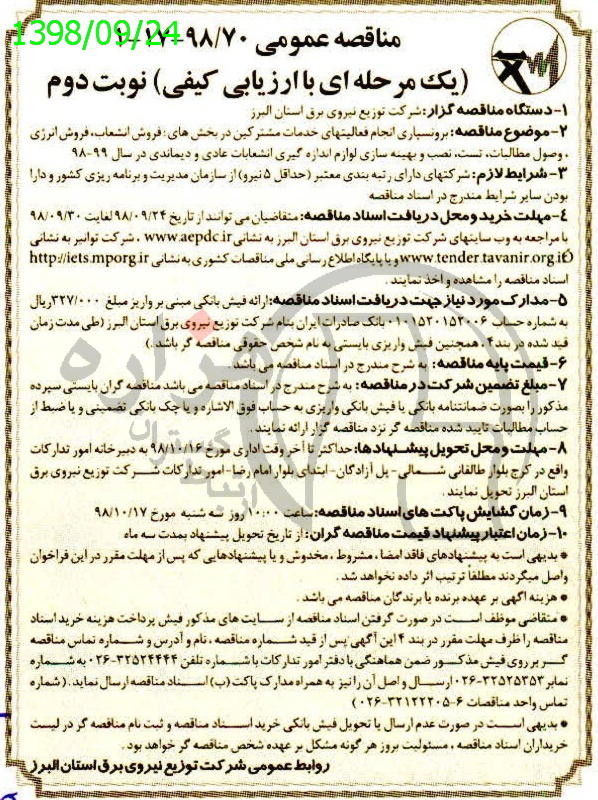 1398/09/24
مناقصه عمومی ۹۸/۷۰-۱۷-۱
(یک مرحله ای با ارزیابی کیفی) نوبت دوم
۱-دستگاه مناقصه گزار: شرکت توزیع نیروی برق استان البرز
۲-موضوع مناقصه: برونسپاری انجام فعالیتهای خدمات مشترکین در بخش های: فروش انشعاب، فروش انرژی
، وصول مطالبات، تست، نصب و بهینه سازی لوازم اندازه گیری انشعابات عادی و دیماندی در سال ۹۹-۹۸
۳-شرایط لازم: شرکتهای دارای رتبه بندی معتبر (حداقل ۵ نیرو) از سازمان مدیریت و برنامه ریزی کشور و دارا
بودن سایر شرایط مندرج در اسناد مناقصه
۴-مهلت خرید و محل دریافت اسناد مناقصه: متقاضیان می توانند از تاریخ ۹۸/۰۹/۲۴ لغایت ۹۸/۰۹/۳۰
با مراجعه به وب سایتهای شرکت توزیع نیروی برق استان البرز به نشانی www.aepdc.ir ، شرکت توانیر به نشانی
www.tender.tavanir.org.ir و یا پایگاه اطلاع رسانی ملی مناقصات کشوری به نشانی http://iets.mporg.ir
اسناد مناقصه را مشاهده و اخذ نمایند .
۵-مدارک مورد نیاز جهت دریافت اسناد مناقصه: ارائه فیش بانکی مبنی بر واریز مبلغ ۳۲۷/۰۰۰ ریال
به شماره حساب ۰۱۰۱۵۲۰۱۵۲۰۰۶ بانک صادرات ایران بنام شرکت توزیع نیروی برق استان البرز (طی مدت زمان
قید شده در بند ۴ ، همچنین فیش واریزی بایستی به نام شخص حقوقی مناقصه گر باشد .)
۶-قیمت پایه مناقصه: به شرح مندرج در اسناد مناقصه می باشد .
۷-مبلغ تضمین شرکت در مناقصه: به شرح مندرج در اسناد مناقصه می باشد مناقصه گران بایستی سپرده
مذکور را بصورت ضمانتنامه بانکی یا فیش بانکی واریزی به حساب فوق الاشاره و یا چک بانکی تضمینی و یا ضبط از
حساب مطالبات تایید شده مناقصه گر نزد مناقصه گزار ارائه نمایند .
۸-مهلت و محل تحویل پیشنهادها: حداکثر تا آخر وقت اداری مورخ ۹۸/۱۰/۱۶ به دبیرخانه امور تدارکات
واقع در کرج بلوار طالقانی شمالی- پل آزادگان- ابتدای بلوار امام رضا- امور تدارکات شرکت توزیع نیروی برق
استان البرز تحویل نمایند .
۹-زمان گشایش پاکت های اسناد مناقصه: ساعت ۱۰:۰۰ روز سه شنبه مورخ ۹۸/۱۰/۱۷
۱۰-زمان اعتبار پیشنهاد قیمت مناقصه گران: از تاریخ تحویل پیشنهاد بمدت سه ماه
● بدیهی است به پیشنهادهای فاقد امضا ، مشروط ، مخدوش و یا پیشنهادهایی که پس از مهلت مقرر در این فراخوان
واصل میگردند مطلقاً ترتیب اثر داده نخواهد شد .
● هزینه آگهی بر عهده برنده یا برندگان مناقصه می باشد .
● متقاضی موظف است در صورت گرفتن اسناد مناقصه از سایت های مذکور فیش پرداخت هزینه خرید اسناد
مناقصه را ظرف مهلت مقرر در بند ۴ این آگهی پس از قید شماره مناقصه ، نام و آدرس و شماره تماس مناقصه
گر بر روی فیش مذکور ضمن هماهنگی با دفتر امور تدارکات با شماره تلفن ۳۲۵۲۴۴۴۴-۰۲۶ به شماره
نمابر ۳۲۵۲۵۳۵۳-۰۲۶ ارسال و اصل آن را نیز به همراه مدارک پاکت (ب) اسناد مناقصه ارسال نماید . (شماره
تماس واحد مناقصات ۶-۳۲۱۲۲۲۰۵-۰۲۶)
● بدیهی است در صورت عدم ارسال یا تحویل فیش بانکی خرید اسناد مناقصه و ثبت نام مناقصه گر در لیست
خریداران اسناد مناقصه ، مسئولیت بروز هر گونه مشکل بر عهده شخص مناقصه گر خواهد بود .
روابط عمومی شرکت توزیع نیروی برق استان البرز